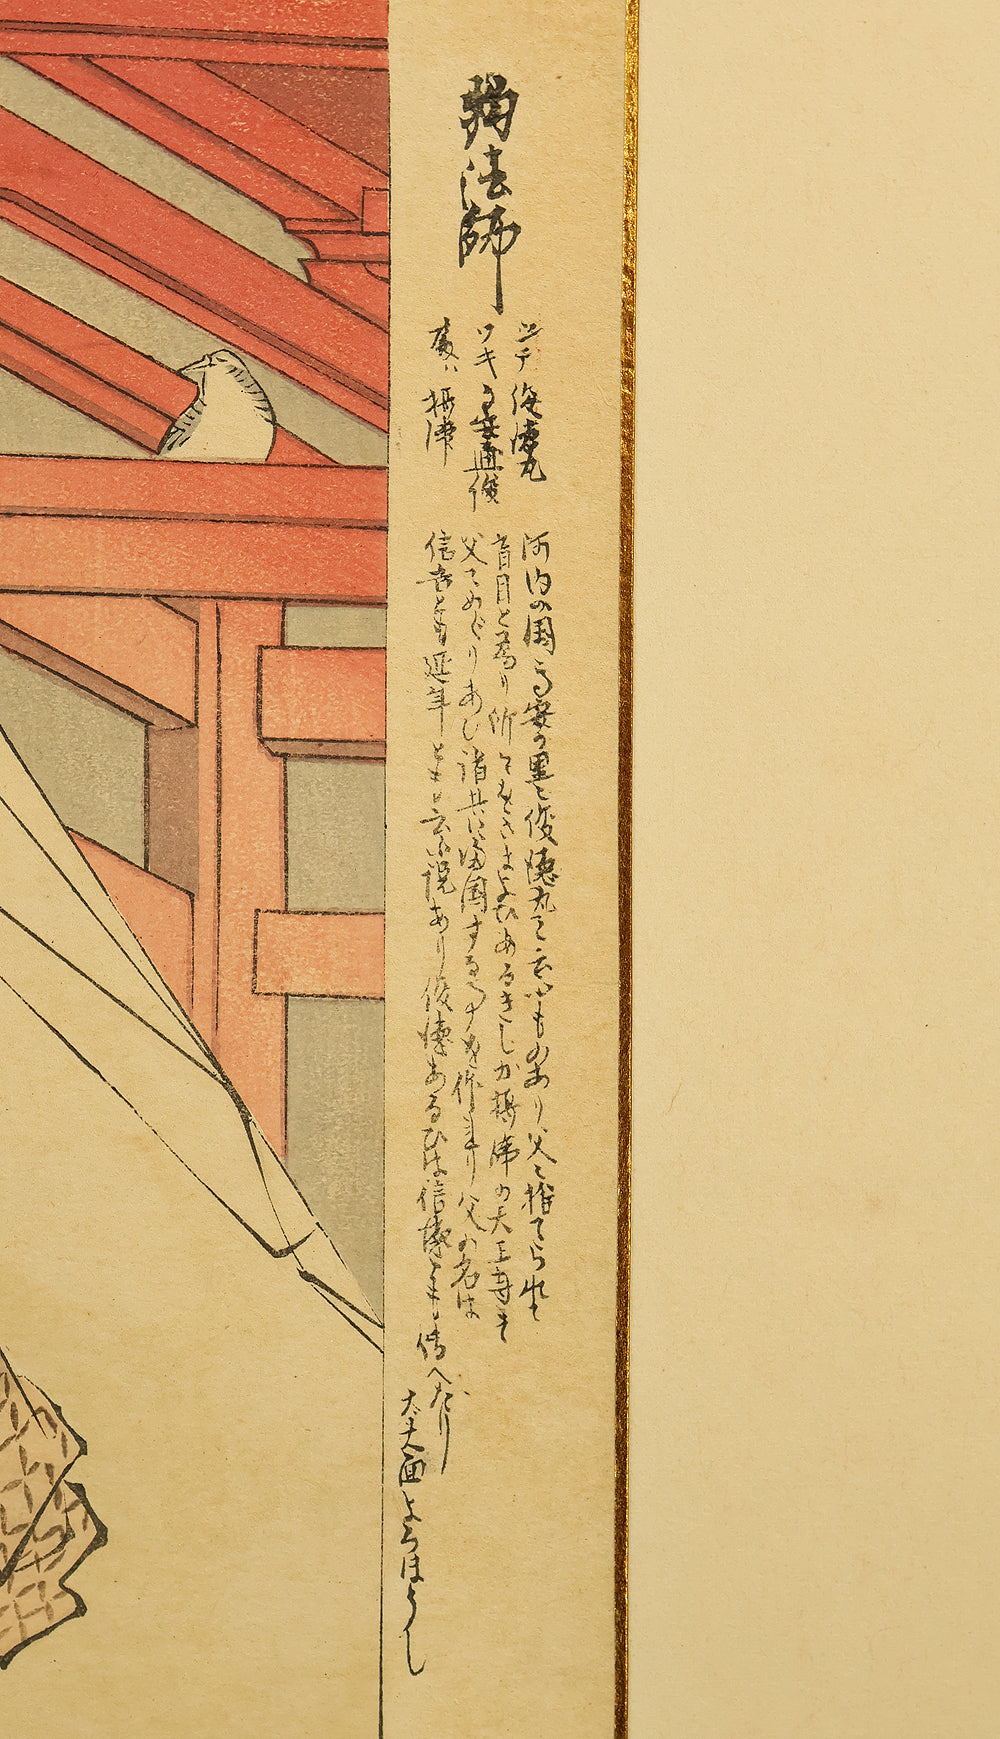 弱法師
シテ 俊徳丸
ワキ 高安通俊
処ハ 摂津
河内の国高安の里に俊徳丸と云ふものあり父に捨てられ
盲目と為り所々をさまよひあるきしが摂津の天王寺にて
父にめぐりあひ諸共に帰国する事を作れり父の名は
信吉とも延年とも云ふ説あり俊徳あるひは信徳とも伝へたり
面よろほうし